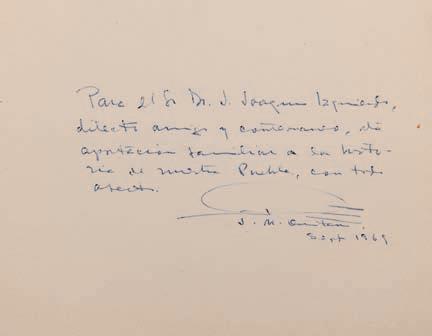 Para el Sr Dr. J. Joaquin Izquierdo,
dilecto amigo y conterraneo, esta
aportación familiar a la histo-
ria de nuestra Puebla, con todo
afecto.
J. M.
Sept 1969